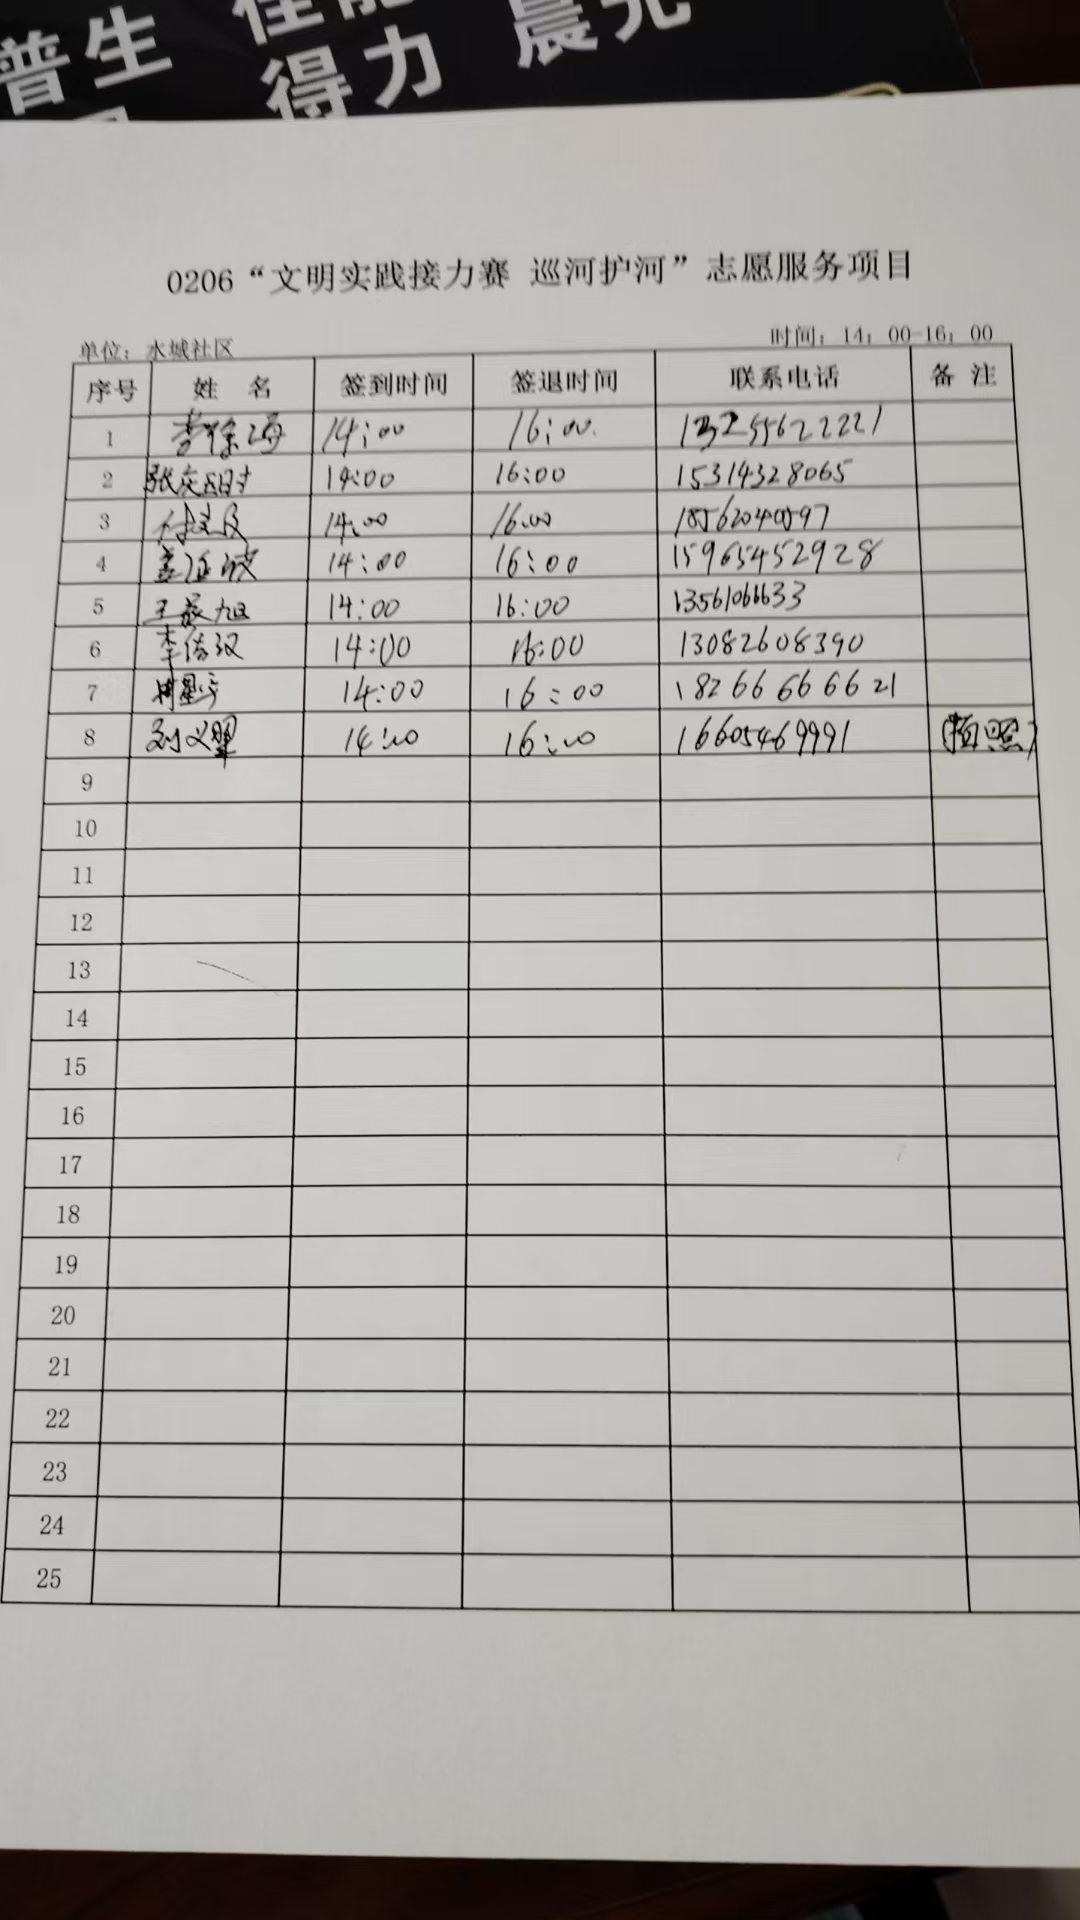 普生
得力 晨光
0206“文明实践接力赛 巡河护河”志愿服务项目
单位：水城社区 时间：14：00-16：00
序号 姓 名 签到时间 签退时间 联系电话 备 注
1 14:00 16:00. 13255622221
2 14:00 16:00 15314328065
3 14:00 16:00 18562040597
4 14:00 16:00 15965452928
5 王晨旭 14:00 16:00 13561066633
6 14:00 16:00 13082608390
7 14:00 16:00 18266666621
8 刘义翠 14:00 16:00 16605469991 (拍照)
9
10
11
12
13
14
15
16
17
18
19
20
21
22
23
24
25